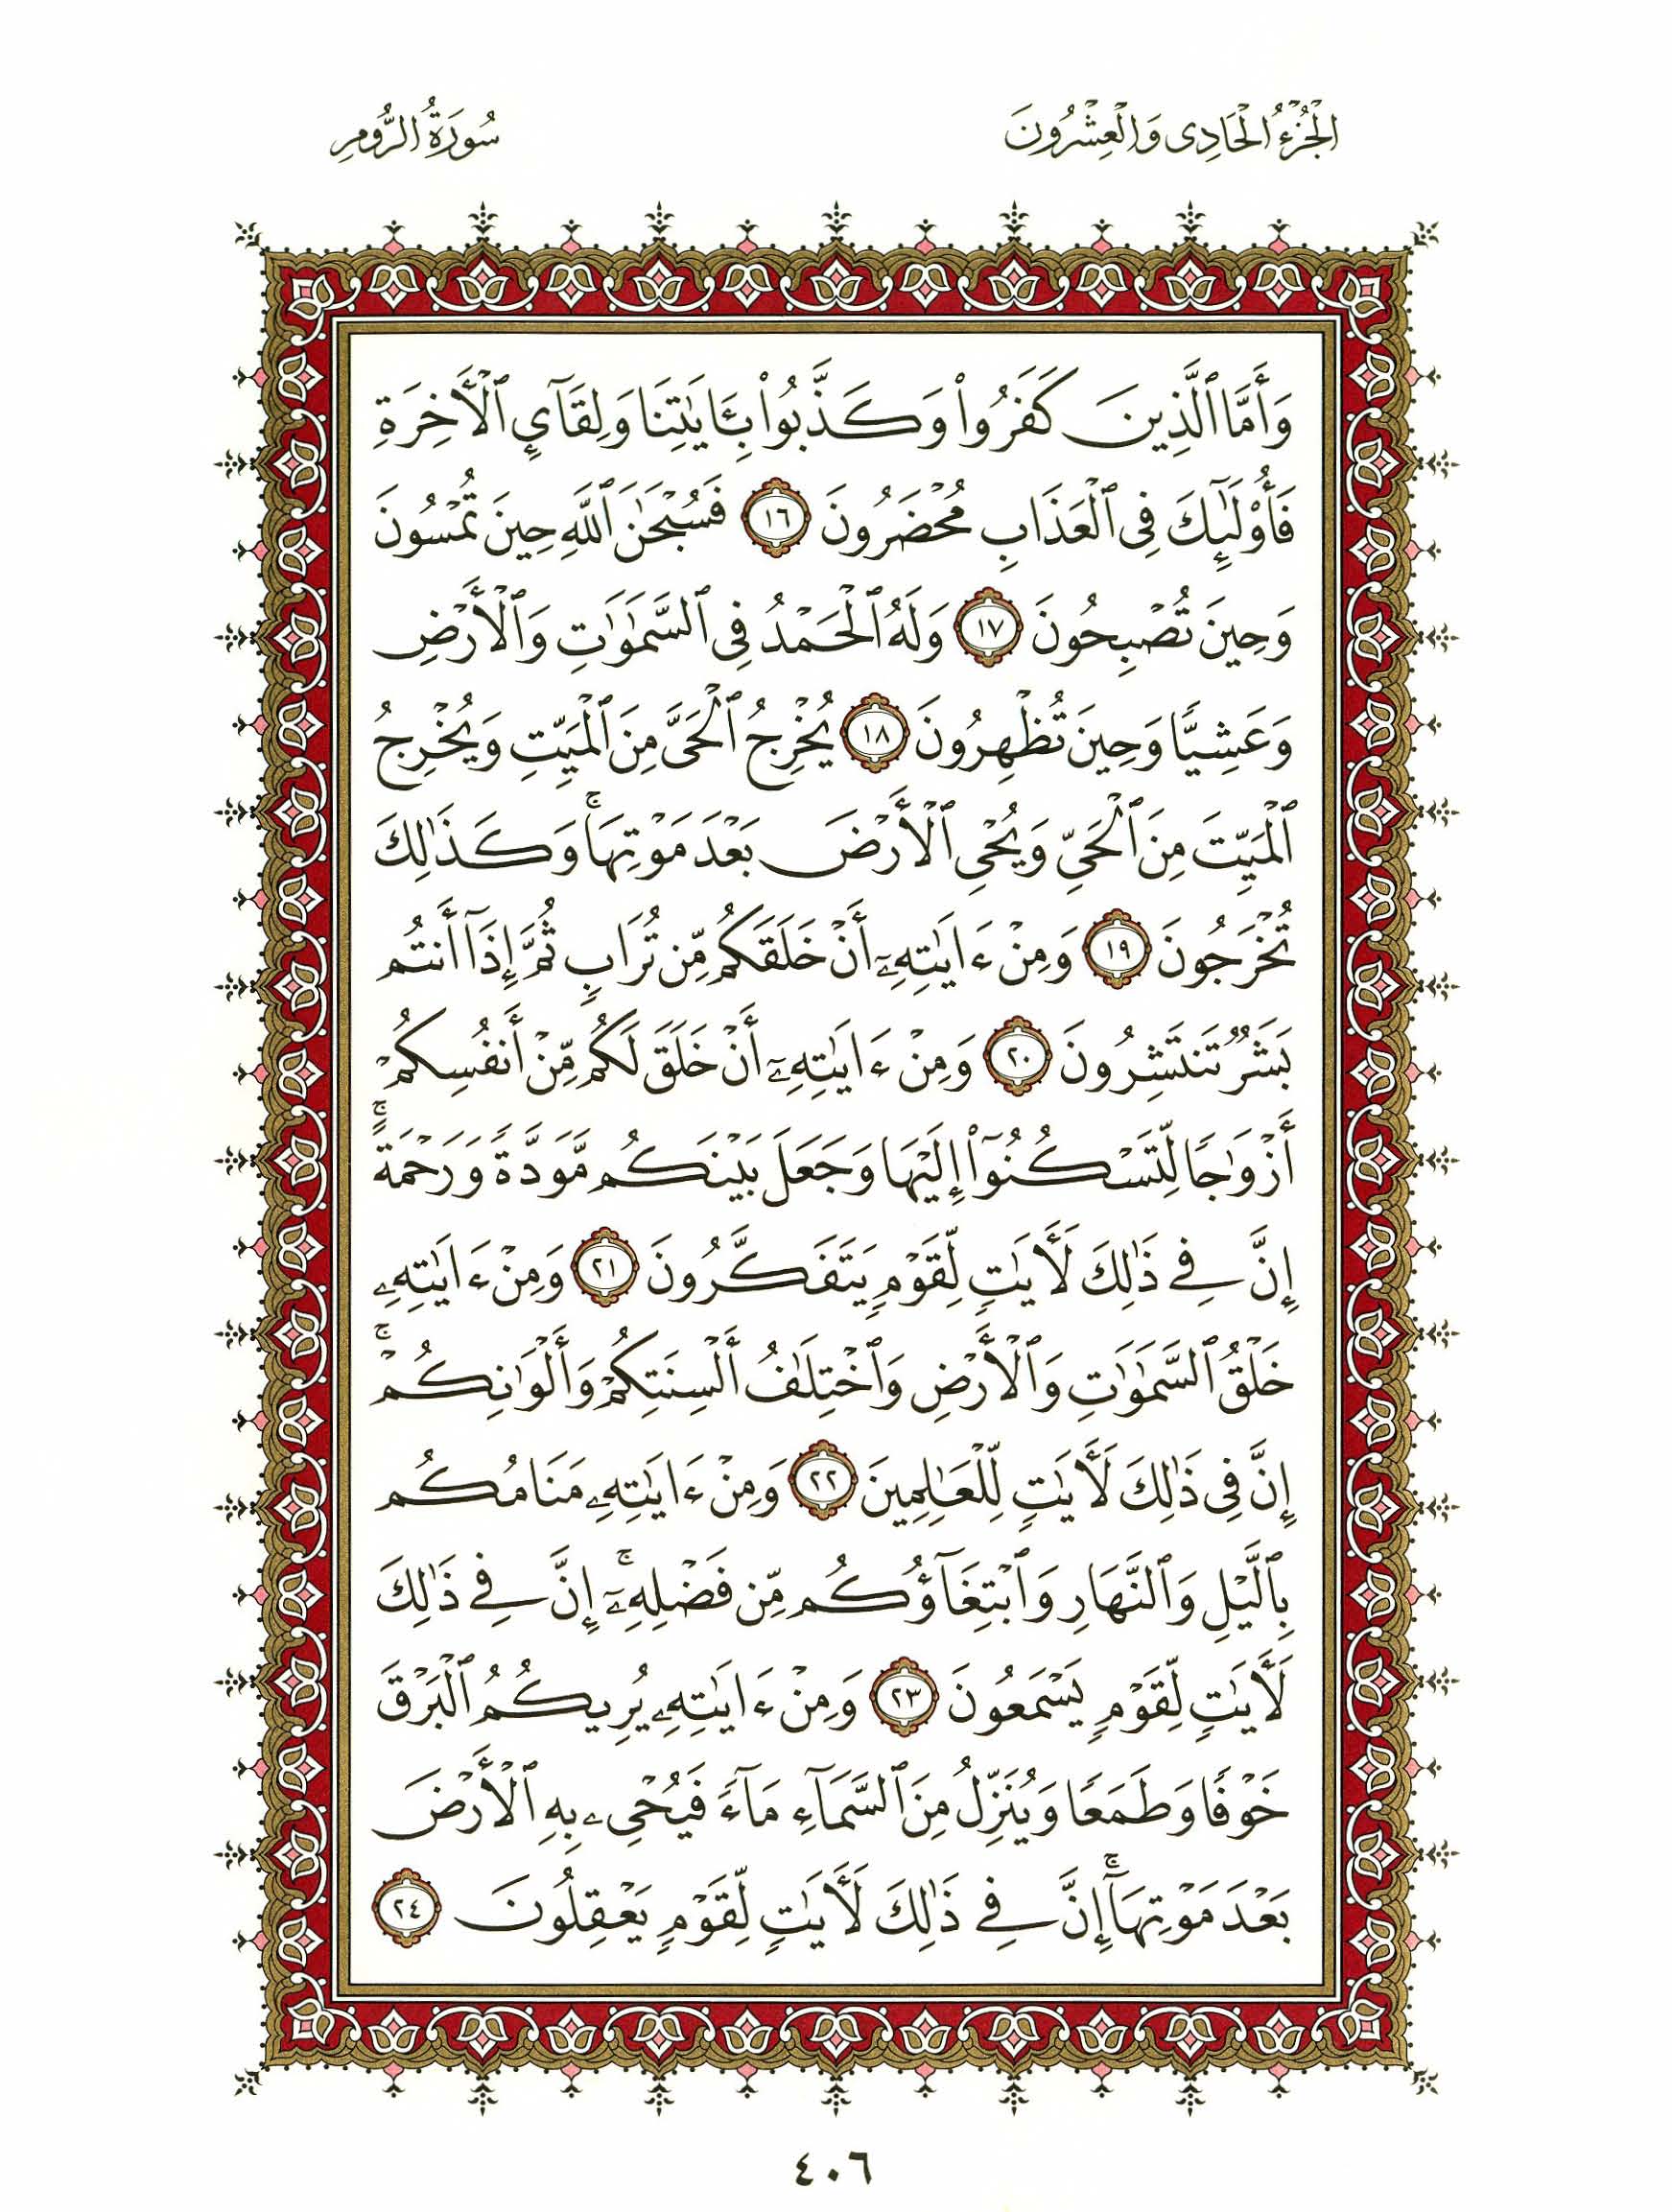 الجُزْءُ الحَادِى وَالعِشْرُونَ
سُورَةُ الرُّومِ
وَأَمَّا ٱلَّذِينَ كَفَرُوا۟ وَكَذَّبُوا۟ بِـَٔايَـٰتِنَا وَلِقَآئِ ٱلْـَٔاخِرَةِ
فَأُو۟لَـٰٓئِكَ فِى ٱلْعَذَابِ مُحْضَرُونَ ١٦ فَسُبْحَـٰنَ ٱللَّهِ حِينَ تُمْسُونَ
وَحِينَ تُصْبِحُونَ ١٧ وَلَهُ ٱلْحَمْدُ فِى ٱلسَّمَـٰوَٰتِ وَٱلْأَرْضِ
وَعَشِيًّا وَحِينَ تُظْهِرُونَ ١٨ يُخْرِجُ ٱلْحَىَّ مِنَ ٱلْمَيِّتِ وَيُخْرِجُ
ٱلْمَيِّتَ مِنَ ٱلْحَىِّ وَيُحْىِ ٱلْأَرْضَ بَعْدَ مَوْتِهَا ۚ وَكَذَٰلِكَ
تُخْرَجُونَ ١٩ وَمِنْ ءَايَـٰتِهِۦٓ أَنْ خَلَقَكُم مِّن تُرَابٍ ثُمَّ إِذَآ أَنتُم
بَشَرٌ تَنتَشِرُونَ ٢٠ وَمِنْ ءَايَـٰتِهِۦٓ أَنْ خَلَقَ لَكُم مِّنْ أَنفُسِكُمْ
أَزْوَٰجًا لِّتَسْكُنُوٓا۟ إِلَيْهَا وَجَعَلَ بَيْنَكُم مَّوَدَّةً وَرَحْمَةً ۚ
إِنَّ فِى ذَٰلِكَ لَـَٔايَـٰتٍ لِّقَوْمٍ يَتَفَكَّرُونَ ٢١ وَمِنْ ءَايَـٰتِهِۦ
خَلْقُ ٱلسَّمَـٰوَٰتِ وَٱلْأَرْضِ وَٱخْتِلَـٰفُ أَلْسِنَتِكُمْ وَأَلْوَٰنِكُمْ ۚ
إِنَّ فِى ذَٰلِكَ لَـَٔايَـٰتٍ لِّلْعَـٰلِمِينَ ٢٢ وَمِنْ ءَايَـٰتِهِۦ مَنَامُكُم
بِٱلَّيْلِ وَٱلنَّهَارِ وَٱبْتِغَآؤُكُم مِّن فَضْلِهِۦٓ ۚ إِنَّ فِى ذَٰلِكَ
لَـَٔايَـٰتٍ لِّقَوْمٍ يَسْمَعُونَ ٢٣ وَمِنْ ءَايَـٰتِهِۦ يُرِيكُمُ ٱلْبَرْقَ
خَوْفًا وَطَمَعًا وَيُنَزِّلُ مِنَ ٱلسَّمَآءِ مَآءً فَيُحْىِۦ بِهِ ٱلْأَرْضَ
بَعْدَ مَوْتِهَآ ۚ إِنَّ فِى ذَٰلِكَ لَـَٔايَـٰتٍ لِّقَوْمٍ يَعْقِلُونَ ٢٤
٤٠٦